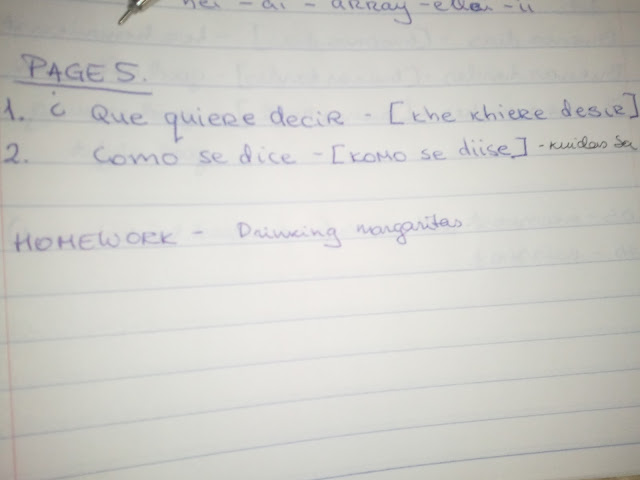 - ai - array -
PAGE 5.
1. ¿ Que quiere decir - [khe khiere desir]
2. Como se dice - [komo se diise] -
HOMEWORK - Drinking margaritas